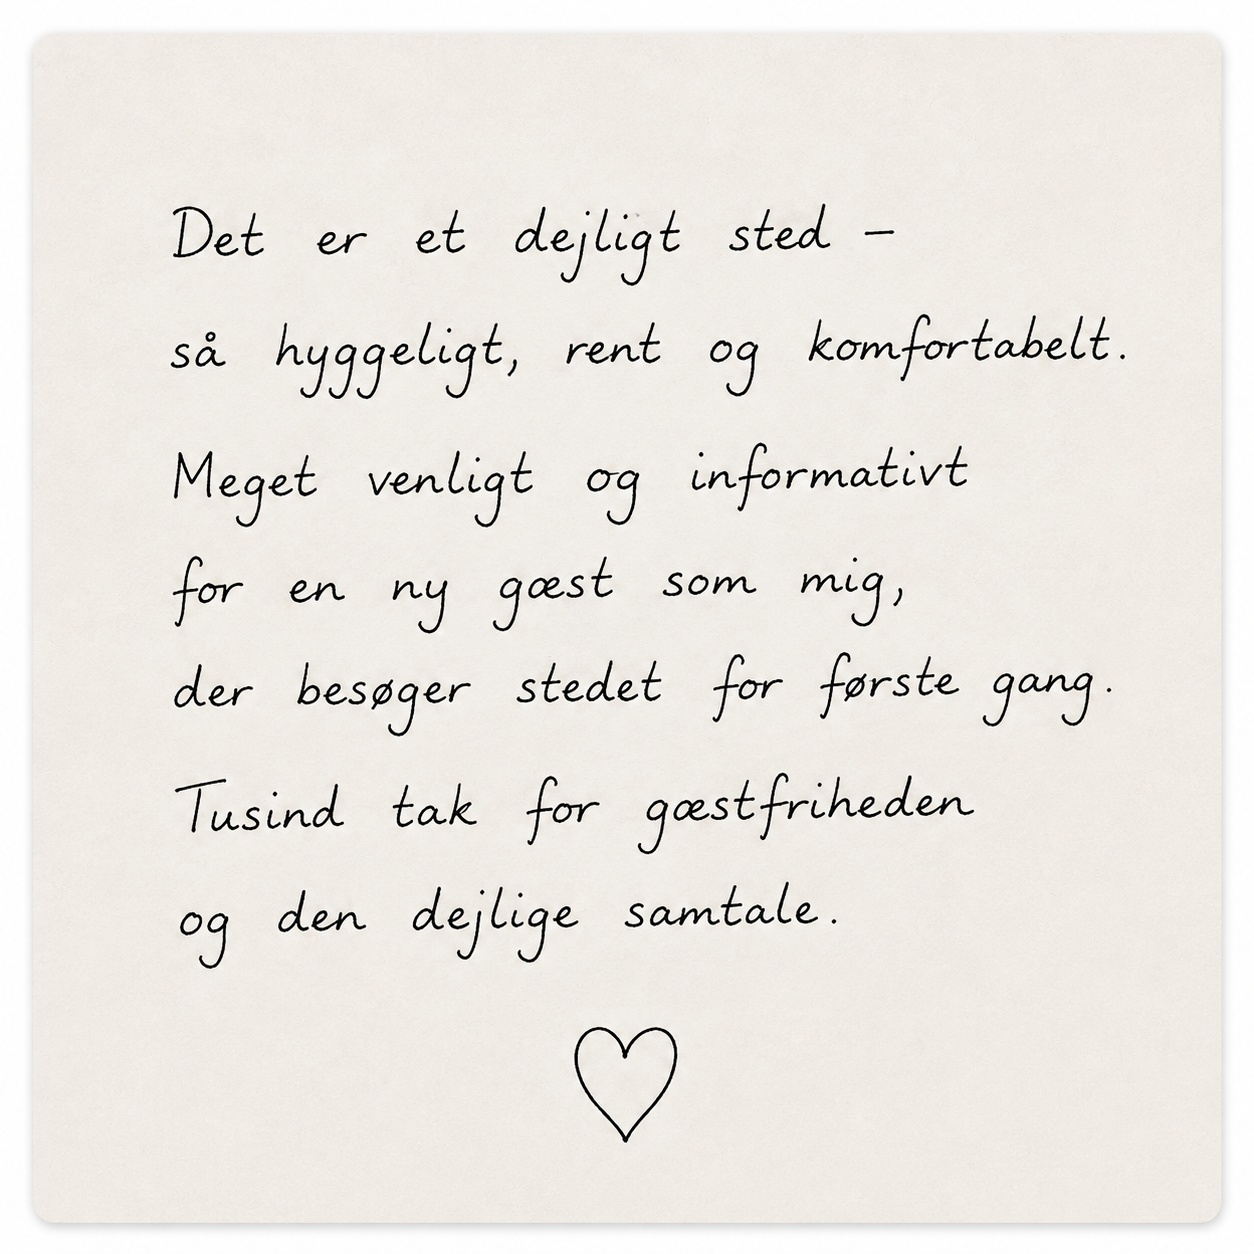 Det er et dejligt sted –
så hyggeligt, rent og komfortabelt.
Meget venligt og informativt
for en ny gæst som mig,
der besøger stedet for første gang.
Tusind tak for gæstfriheden
og den dejlige samtale.